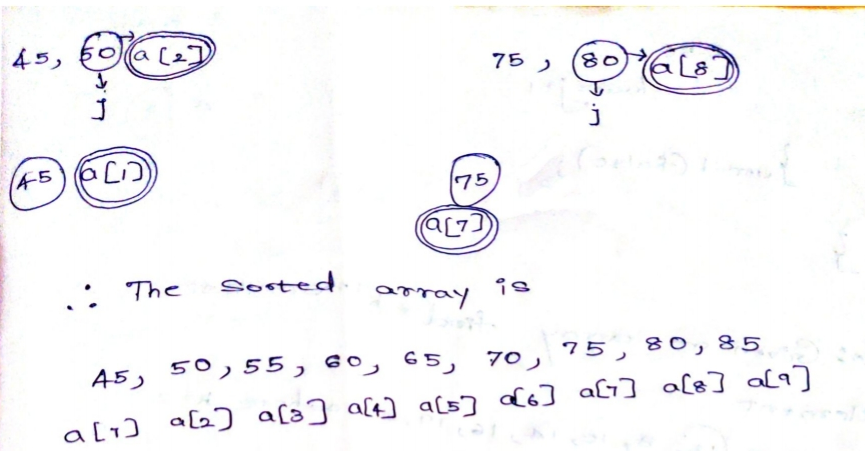 45, 50 a[2] 75, 80 a[8]
j j
45 a[1] 75
a[7]
∴ The Sorted array is
45, 50, 55, 60, 65, 70, 75, 80, 85
a[1] a[2] a[3] a[4] a[5] a[6] a[7] a[8] a[9]